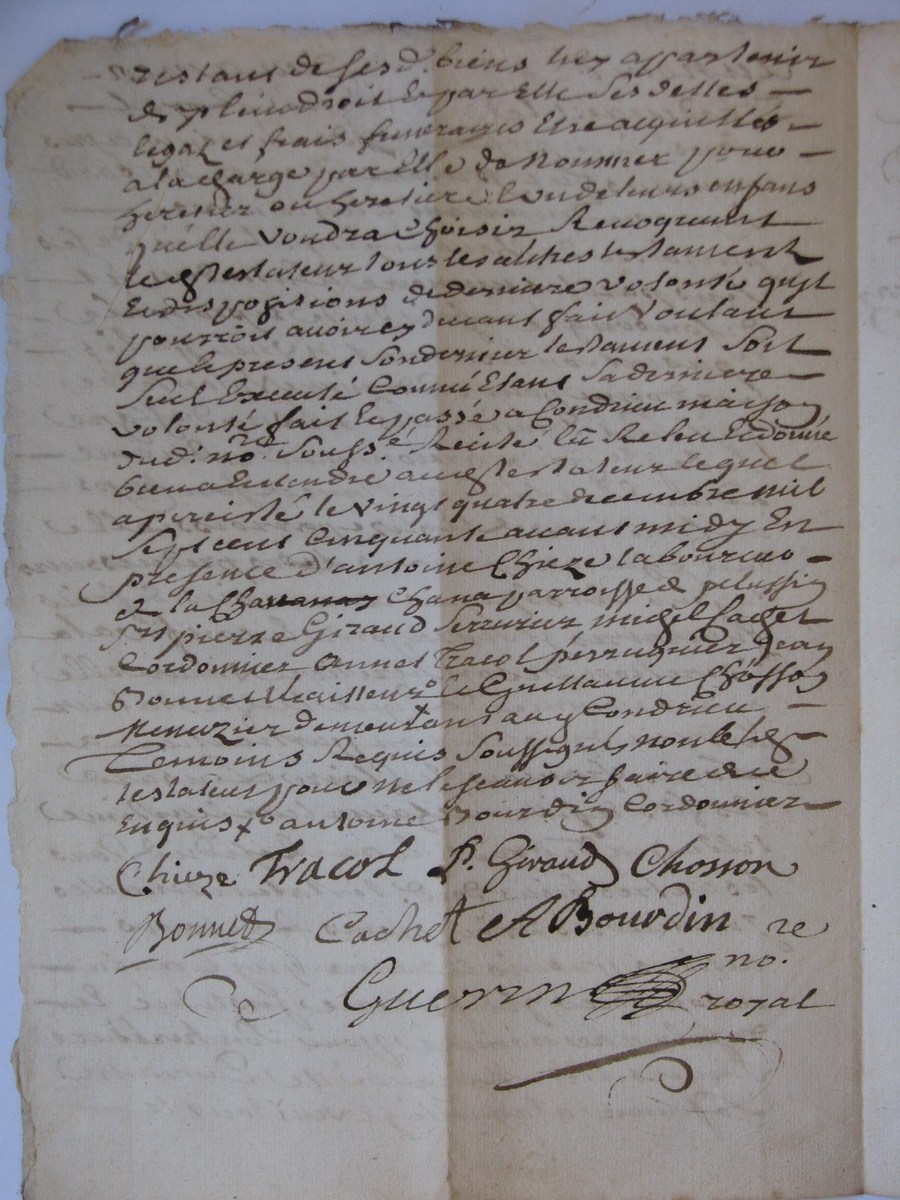 restant de ses d. biens luy appartenir
de plein droit Et par Elle ses dettes
legaz et frais funeraires Etre acquittés
a la charge par Elle de Nommer pour
heretier ou heretiere l'un de leurs enfans
qu'elle voudra choisir Revoquant
led. testateur tous les autres testament
Et dispositions de derniere volonté qu'il
pourroit avoir cy devant fait Voulant
que le present son dernier testament soit
seul Executé comme Etant sa derniere
volonté fait Et passé a Condrieu maison
dud. no.re souss.é Recité lû Releu Et donné
bien a Entendre aud. testateur lequel
a persisté le vingt quatre decembre mil
sept cent cinquante avant midy En
presence d'antoine Chieze laboureur
de la Chana parroisse de pelussin
srs pierre Giraud serrurier michel Cachet
Cordonnier annet Tracol perruquier jean
Bonnet tailleur & Guillaume Chosson
Menuzier demeurants aud. Condrieu
Temoins Requis soussignés non led.
testateur pour ne le sçavoir faire de ce
Enquis & antoine Bourdin Cordonnier
Chieze Tracol P. Giraud Chosson
Bonnet Cachet A Bourdin re
no.
Guerin royal